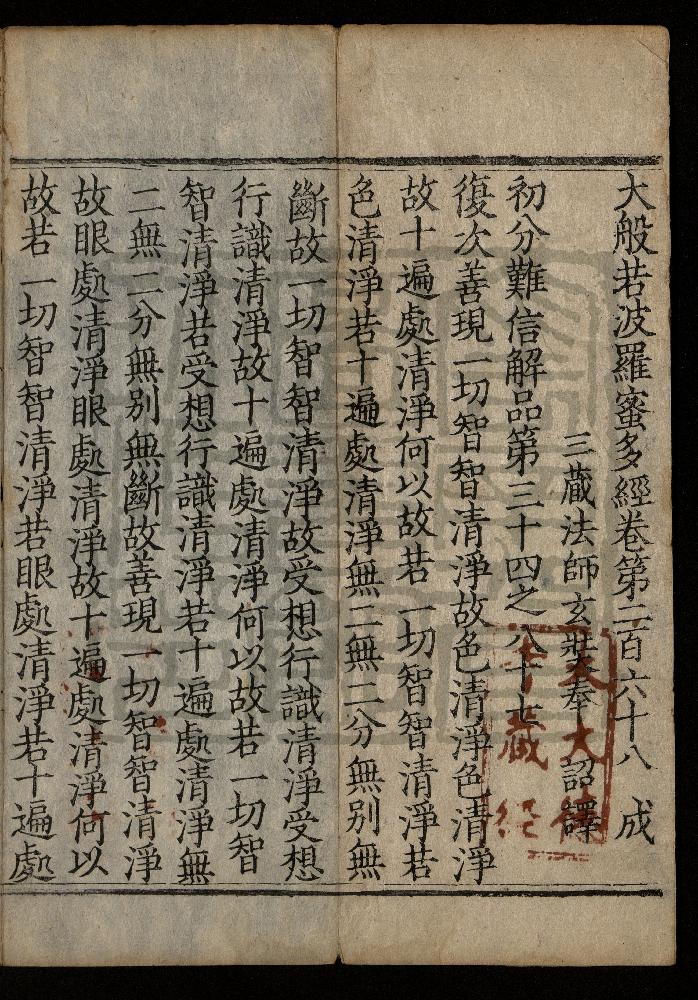 大般若波羅蜜多經卷第二百六十八 成
三藏法師玄奘奉 詔譯
初分難信解品第三十四之八十七
復次善現一切智智清淨故色清淨色清淨
故十遍處清淨何以故若一切智智清淨若
色清淨若十遍處清淨無二無二分無別無
斷故一切智智清淨故受想行識清淨受想
行識清淨故十遍處清淨何以故若一切智
智清淨若受想行識清淨若十遍處清淨無
二無二分無別無斷故善現一切智智清淨
故眼處清淨眼處清淨故十遍處清淨何以
故若一切智智清淨若眼處清淨若十遍處